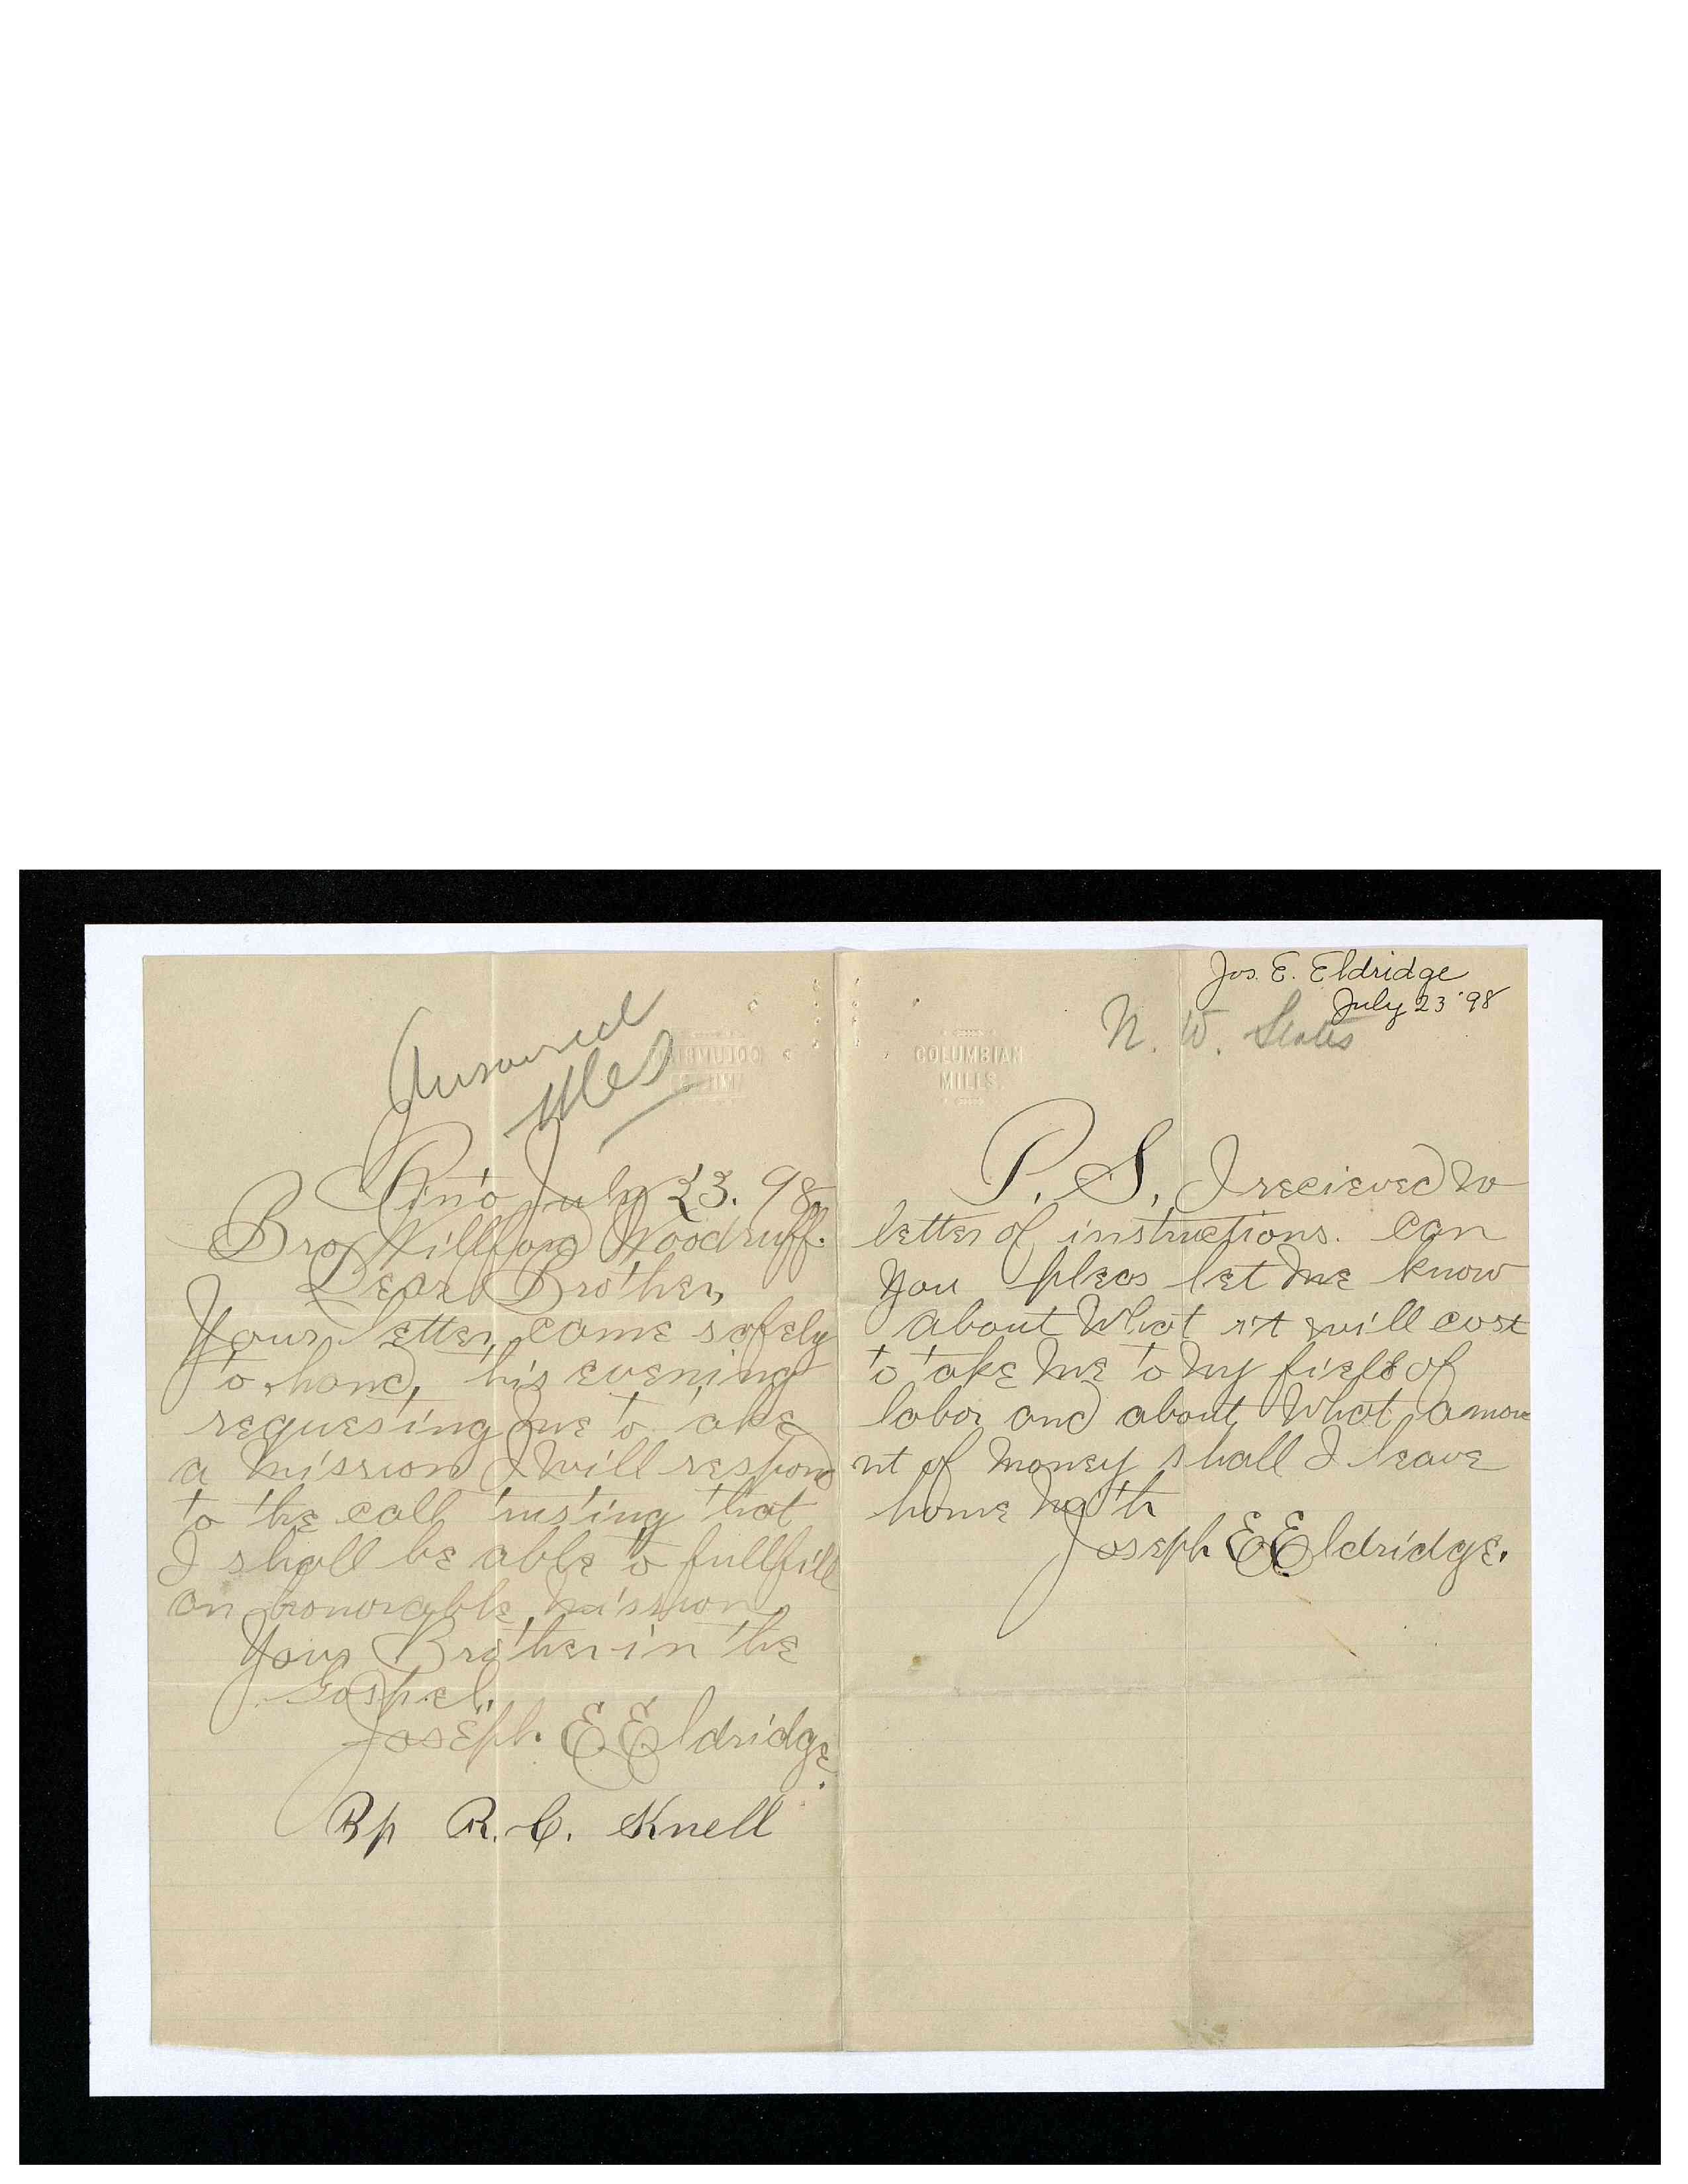 Answered
Yes
Pinto July 23. 98.
Bro Willford Woodruff.
Dear Brother,
Your letter came safely
to hand, this evening
requesting me to take
a mission I will respond
to the call trusting that
I shall be able to fullfill
an honorable mission
Your Brother in the
Gospel.
Joseph E Eldridge.
Bp R. C. Knell
Jos. E. Eldridge
July 23 '98
N. W. States
COLUMBIAN
MILLS.
P. S. I recieved no
letter of instructions. Can
you pleas let me know
about What it will cost
to take me to my field of
labor and about What amou
nt of money shall I leave
home with
Joseph E Eldridge.